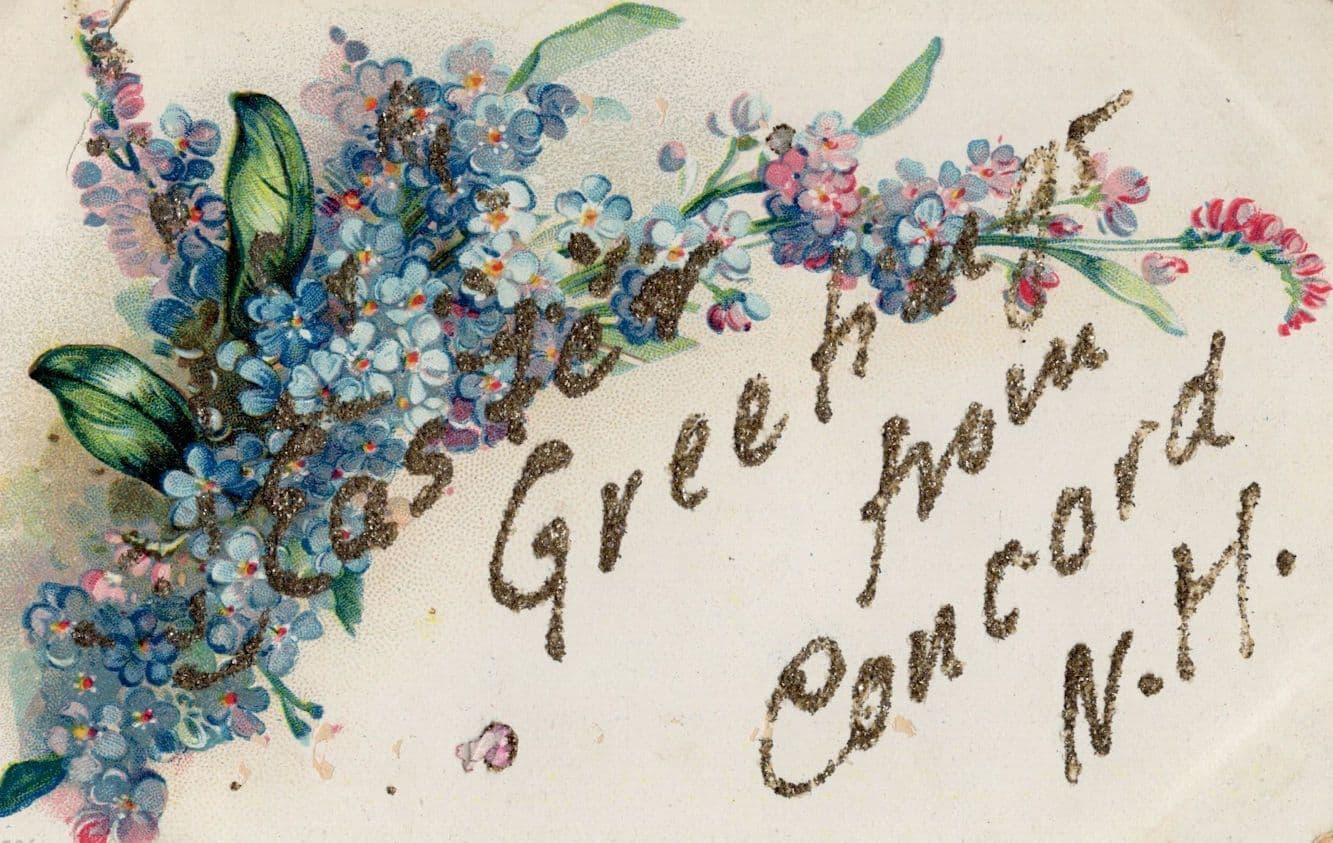 Easter
Greetings
from
Concord
N.H.